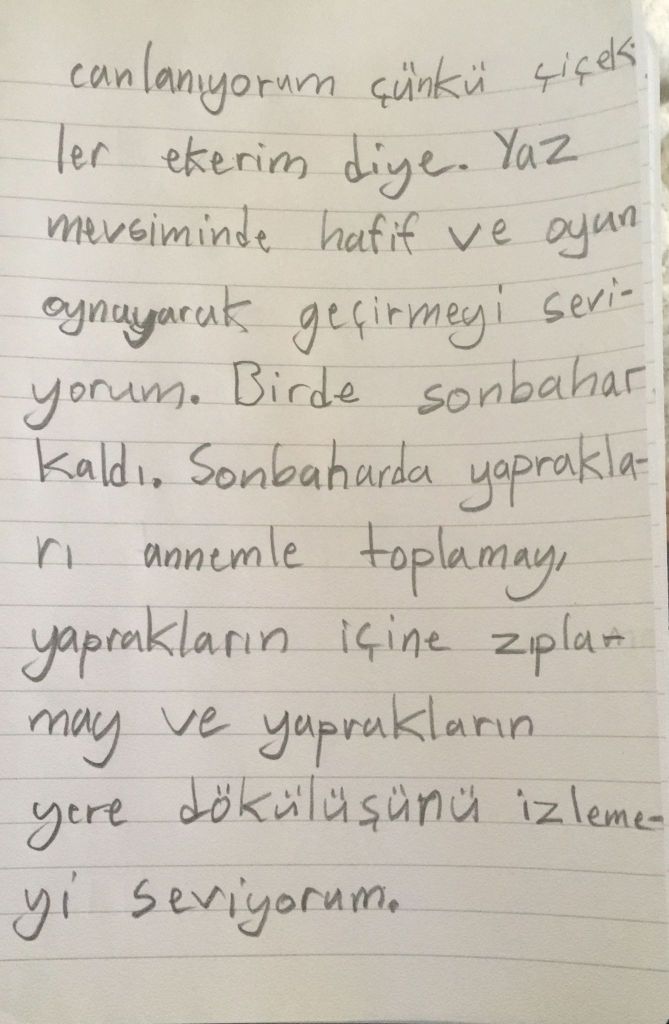 canlanıyorum çünkü çiçek
ler ekerim diye. Yaz
mevsiminde hafif ve oyun
oynayarak geçirmeyi sevi-
yorum. Birde sonbahar
kaldı. Sonbaharda yaprakla-
rı annemle toplamayı
yaprakların içine zıpla-
may ve yaprakların
yere dökülüşünü izleme-
yi seviyorum.